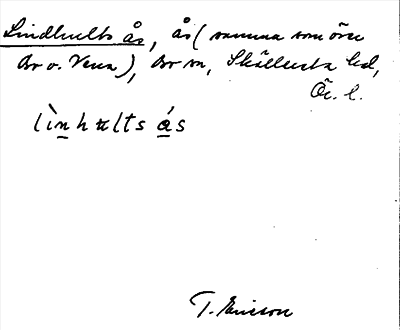 Lindhults ås, ås (samma som övre
Bor o. Vena), Bor sn, Skällerta hd,
Ör. l.
lìnhults ás
T. Ericson